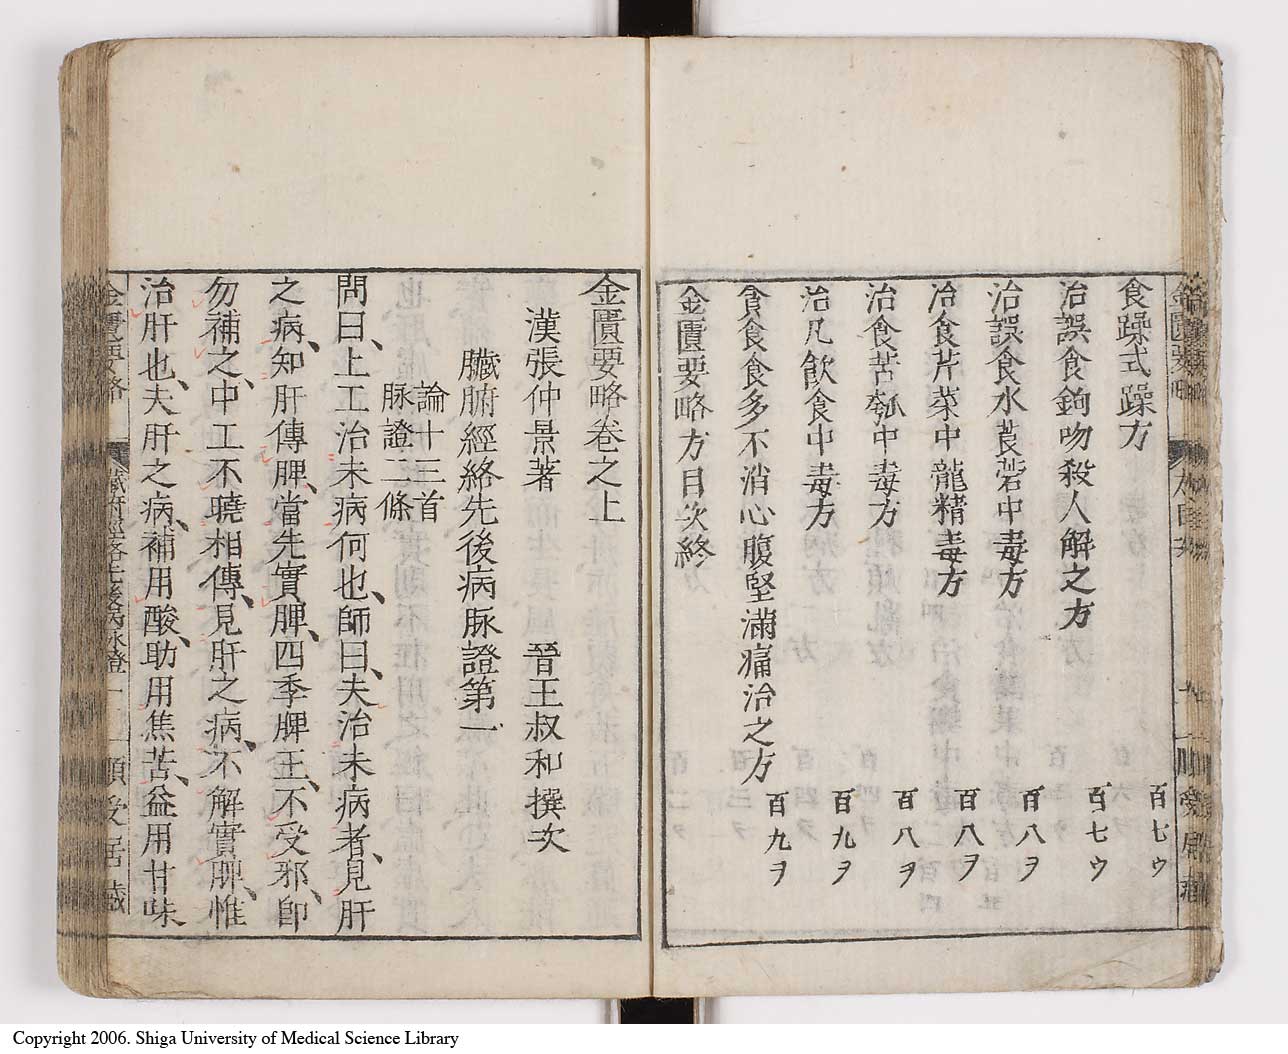 食躁式躁方 百七ウ
治誤食鉤吻殺人解之方 百七ウ
治誤食水莨菪中毒方 百八ヲ
治食芹菜中龍精毒方 百八ヲ
治食苦瓠中毒方 百八ヲ
治凡飲食中毒方 百九ヲ
貪食食多不消心腹堅滿痛治之方 百九ヲ
金匱要略方目次終
金匱要略卷之上
漢張仲景著 晉王叔和撰次
臟腑經絡先後病脉證第一
論十三首
脉證二條
問曰、上工治未病何也、師曰、夫治未病者、見肝
之病、知肝傳脾、當先實脾、四季脾王、不受邪、卽
勿補之、中工不曉相傳、見肝之病、不解實脾、惟
治肝也、夫肝之病、補用酸、助用焦苦、益用甘味
金匱要略 臟腑經絡先後病脉證一 順受居藏
Copyright 2006. Shiga University of Medical Science Library